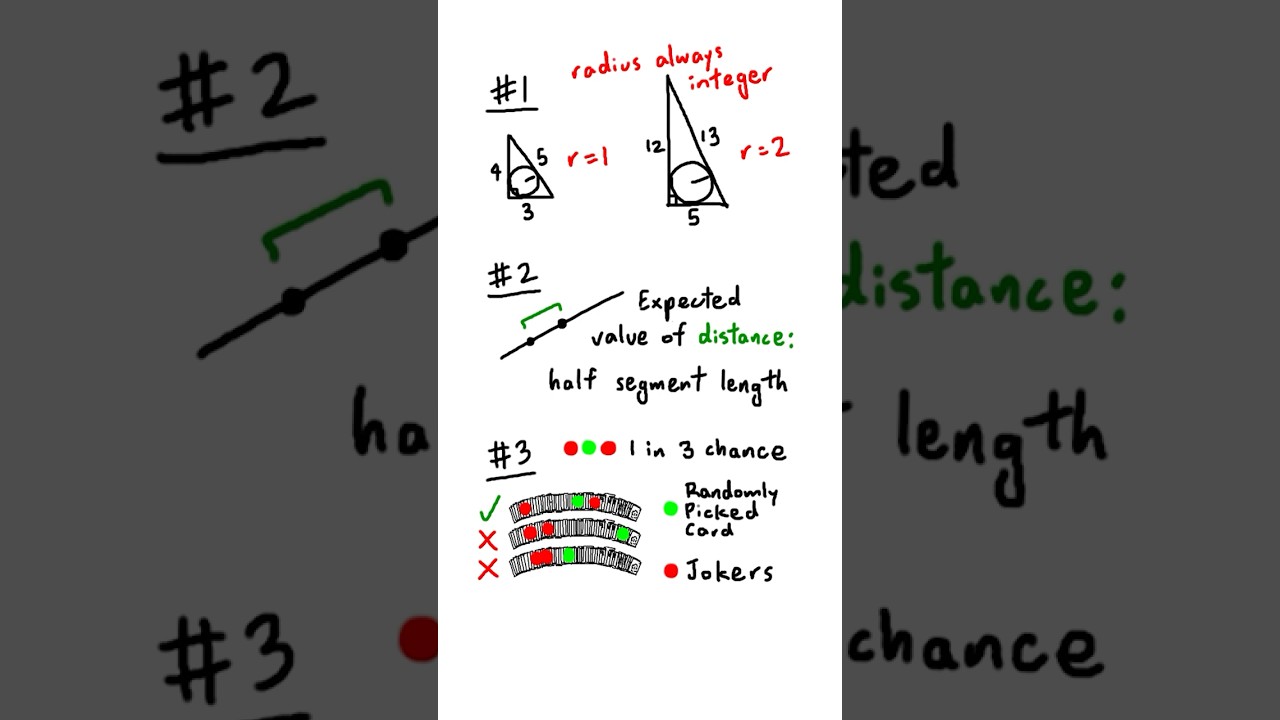 #1
radius always
integer
4
5
3
r=1
12
13
5
r=2
#2
Expected
value of distance:
half segment length
#3
1 in 3 chance
Randomly
Picked
Card
Jokers
#2
ted
distance:
ha
length
#3
chance